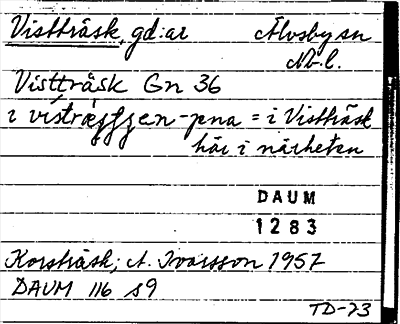 Vistträsk, gd:ar Älvsby sn
Nb.l.
Vistträsk Gn 36
i vistræ -pna = i Vistträsk
här i närheten
DAUM
1283
Korsträsk; A. Ivarsson 1957
DAUM 116 s9
TD-73